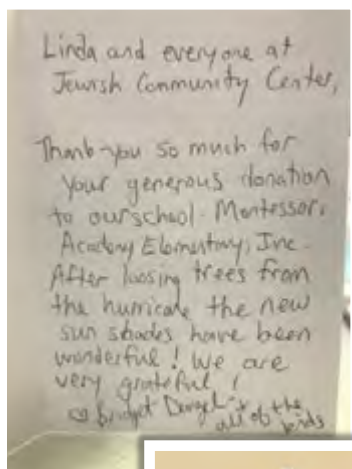 Linda and everyone at
Jewish Community Center,
Thank-you so much for
your generous donation
to our school. Montessori
Academy Elementary, Inc.
After loosing trees from
the hurricane the new
sun shades have been
wonderful! We are
very grateful!
♡ Bridget +
all of the
kids